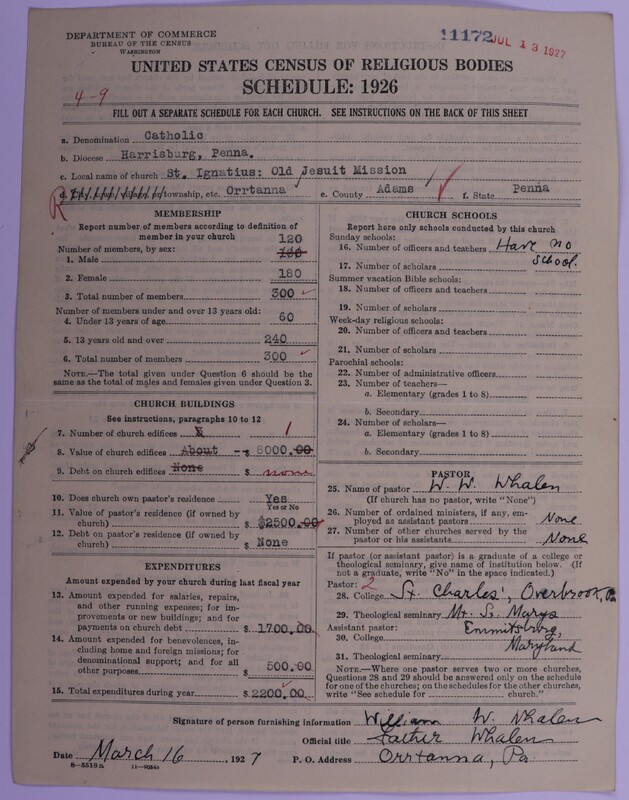 DEPARTMENT OF COMMERCE
BUREAU OF THE CENSUS
WASHINGTON
11172 JUL 13 1927
UNITED STATES CENSUS OF RELIGIOUS BODIES
SCHEDULE: 1926
4-9
FILL OUT A SEPARATE SCHEDULE FOR EACH CHURCH. SEE INSTRUCTIONS ON THE BACK OF THIS SHEET
a. Denomination Catholic
b. Diocese Harrisburg, Penna.
c. Local name of church St. Ignatius: Old Jesuit Mission
R
township, etc. Orrtanna e. County Adams f. State Penna
MEMBERSHIP
Report number of members according to definition of
member in your church
Number of members, by sex: 120
1. Male
2. Female 180
3. Total number of members 300
Number of members under and over 13 years old:
4. Under 13 years of age 60
5. 13 years old and over 240
6. Total number of members 300
NOTE.—The total given under Question 6 should be
the same as the total of males and females given under Question 3.
CHURCH BUILDINGS
See instructions, paragraphs 10 to 12
7. Number of church edifices 1
8. Value of church edifices About $ 5000.00
9. Debt on church edifices None $ none
10. Does church own pastor's residence Yes
Yes or No
11. Value of pastor's residence (if owned by
church) $ $2500.00
12. Debt on pastor's residence (if owned by
church) $ None
EXPENDITURES
Amount expended by your church during last fiscal year
13. Amount expended for salaries, repairs,
and other running expenses; for im-
provements or new buildings; and for
payments on church debt $ 1700.00
14. Amount expended for benevolences, in-
cluding home and foreign missions; for
denominational support; and for all
other purposes $ 500.00
15. Total expenditures during year $ 2200.00
CHURCH SCHOOLS
Report here only schools conducted by this church
Sunday schools:
16. Number of officers and teachers Have no
17. Number of scholars school.
Summer vacation Bible schools:
18. Number of officers and teachers
19. Number of scholars
Week-day religious schools:
20. Number of officers and teachers
21. Number of scholars
Parochial schools:
22. Number of administrative officers
23. Number of teachers—
a. Elementary (grades 1 to 8)
b. Secondary
24. Number of scholars—
a. Elementary (grades 1 to 8)
b. Secondary
PASTOR
25. Name of pastor W. W. Whalen
(If church has no pastor, write "None")
26. Number of ordained ministers, if any, em-
ployed as assistant pastors None
27. Number of other churches served by the
pastor or his assistants None
If pastor (or assistant pastor) is a graduate of a college or
theological seminary, give name of institution below. (If
not a graduate, write "No" in the space indicated.)
Pastor: 2
28. College St. Charles', Overbrook, Pa
29. Theological seminary Mt. St. Marys
Assistant pastor: Emmitsburg,
30. College Maryland
31. Theological seminary
NOTE.—Where one pastor serves two or more churches,
Questions 28 and 29 should be answered only on the schedule
for one of the churches; on the schedules for the other churches,
write "See schedule for church."
Signature of person furnishing information William W. Whalen
Official title Father Whalen
Date March 16, 1927 P. O. Address Orrtanna, Pa.
8-5518a